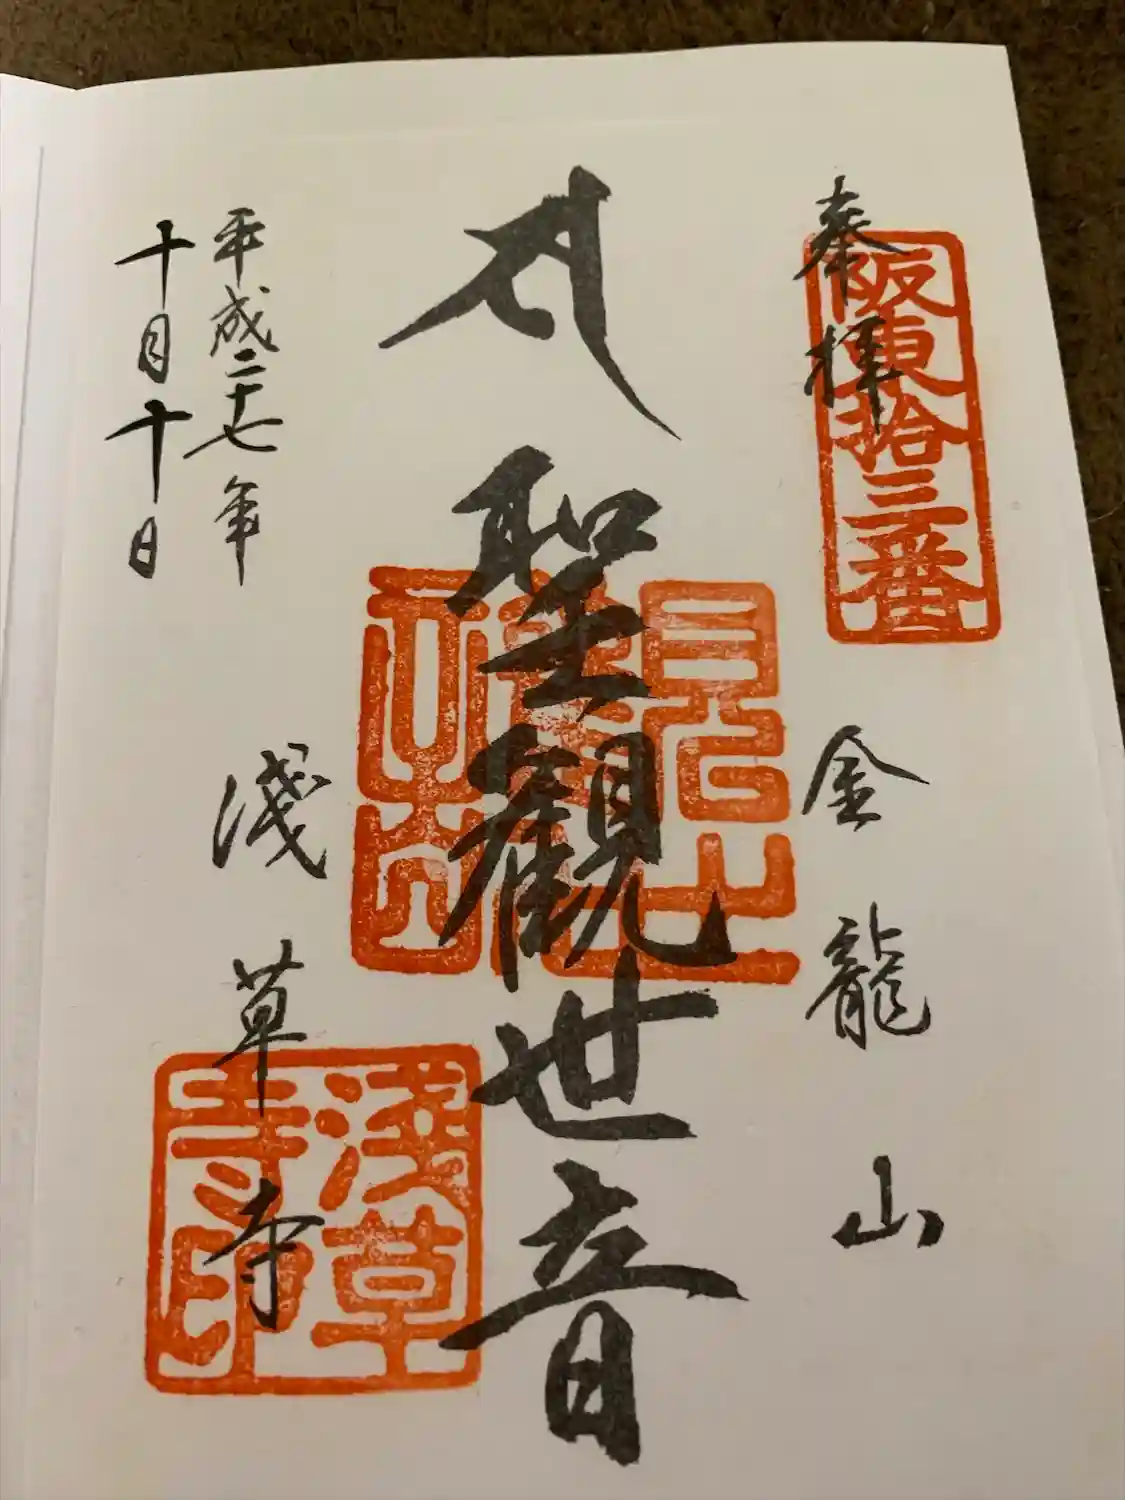 奉拝
阪東拾三番
金龍山
聖観世音
平成二十七年
十月十日
淺草寺
淺草寺印